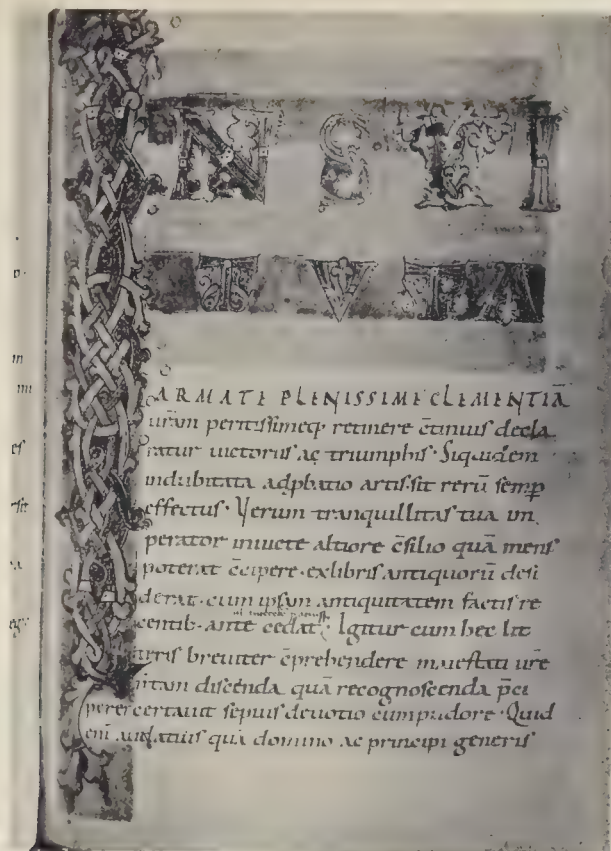 INSTI
TVTA
ARMATE PLENISSIME CLEMENTIĀ
urām peritissimeq; retinere c̄tinuis decla
ratur uictoriis ac triumphis. Siquidem
indubitata adp̄batio artis. sit rerū semp̄
effectus. Verum tranquillitas tua im
perator inuicte altiore c̄silio quā mens
poterat c̄cipere. ex libris antiquorū desi
derat. cum ipsam antiquitatem factis re
centib. ante cedat. Igitur cum hec lit
teris breuiter c̄prehendere maiestati ur̄e
n̄ tam discenda quā recognoscenda p̄ci
perer certauit sepius deuotio cum pudore. Quid
eni audatius quā domino ac principi generis
m
nn
es
rsit